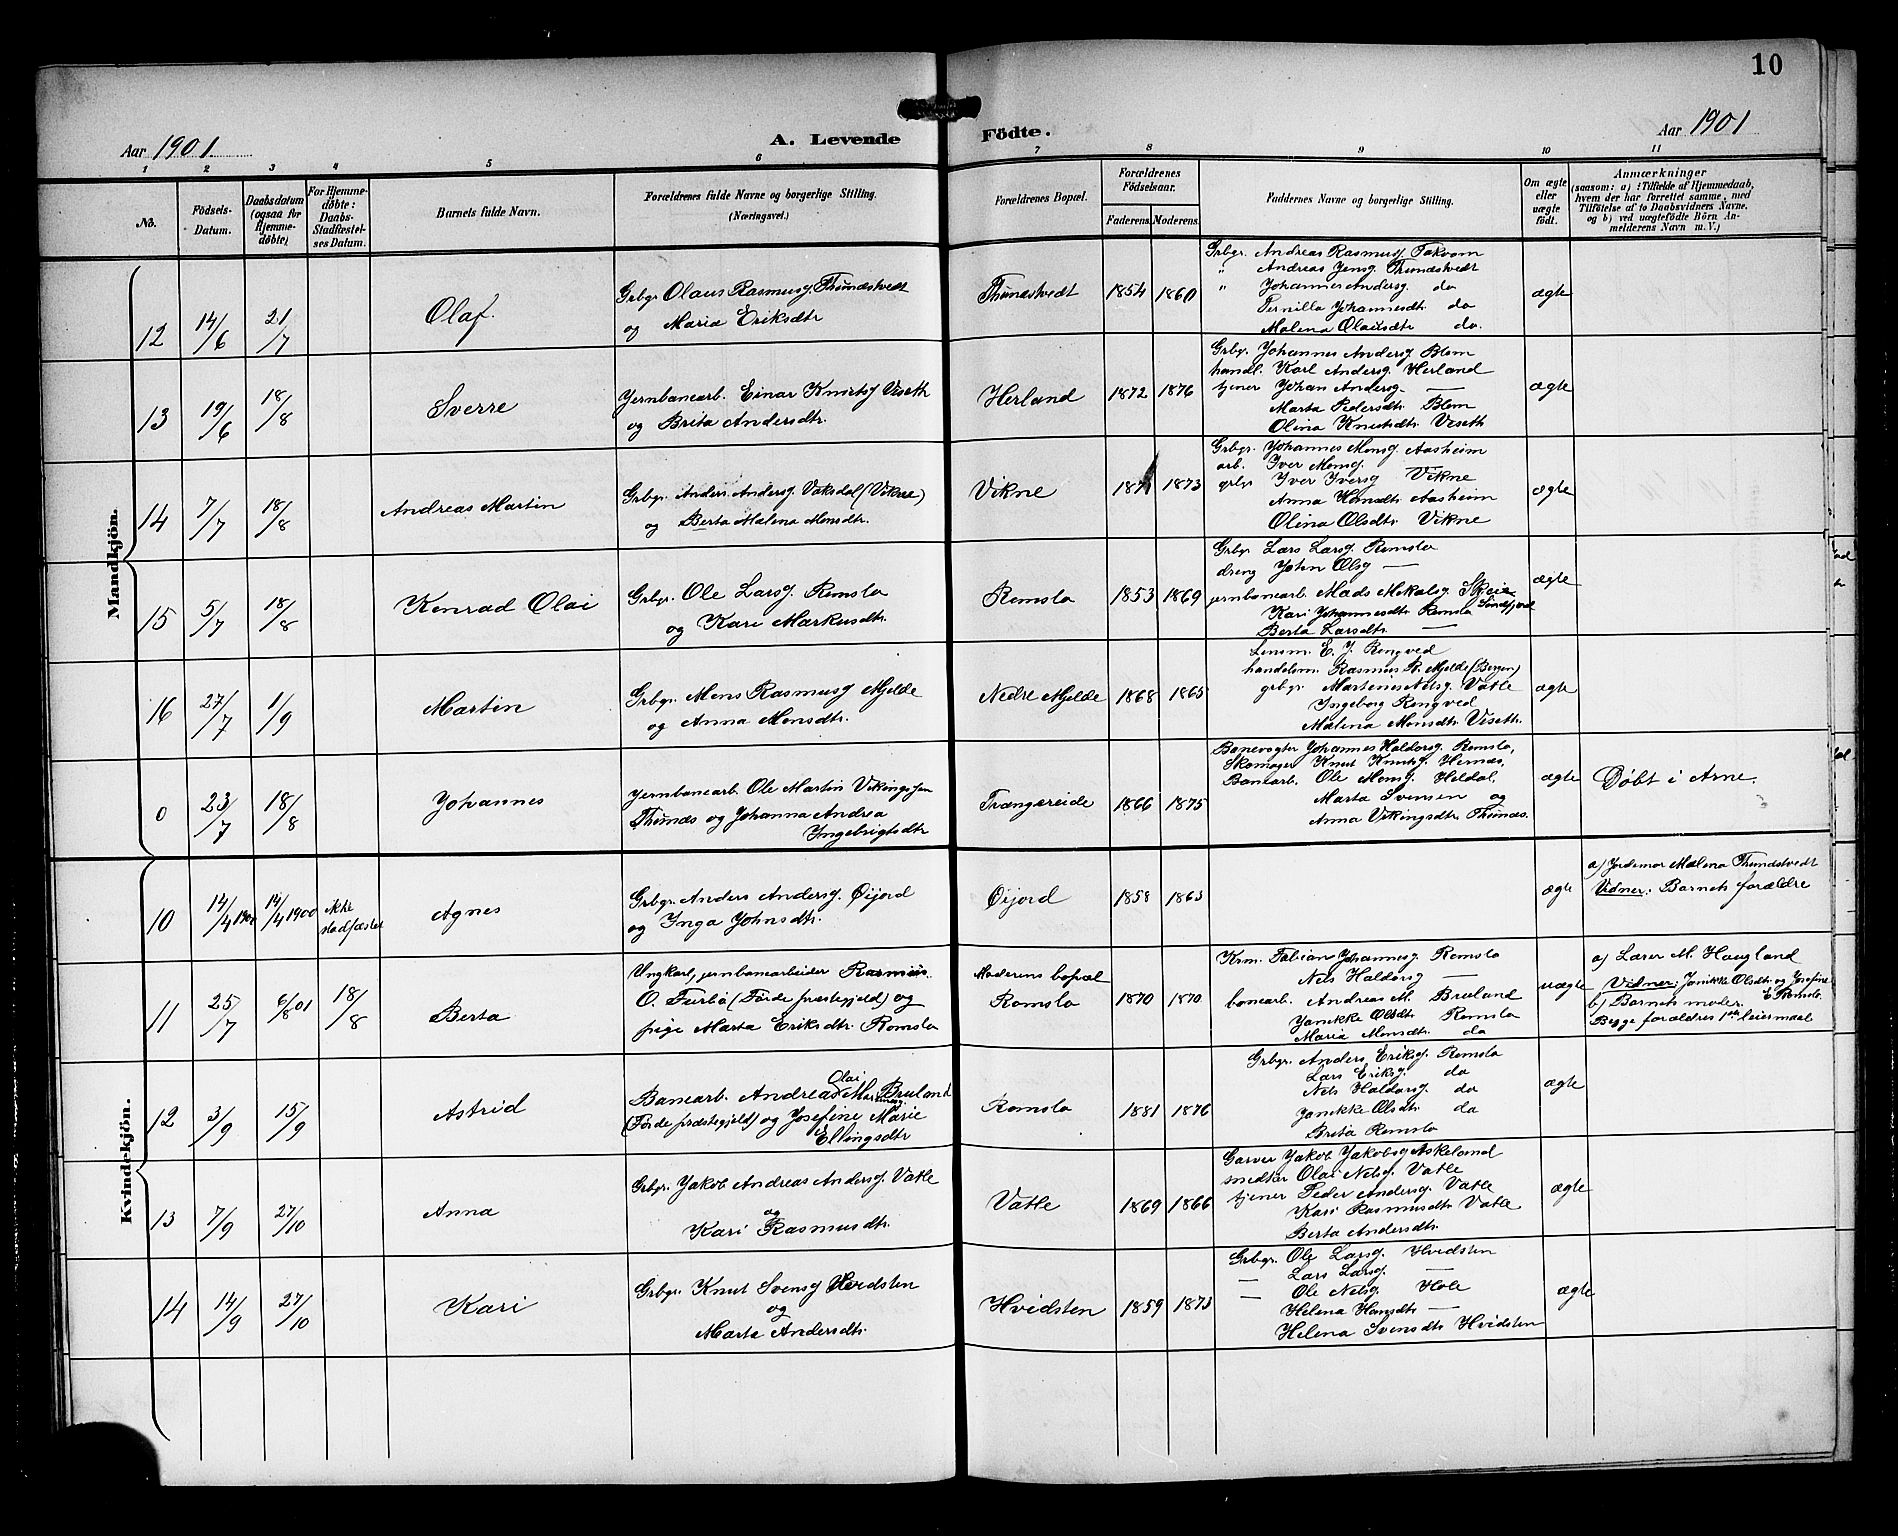 10
Aar 1901
A. Levende Födte.
Aar 1901
1 2 3 4 5 6 7 8 9 10 11
No.
Födsels-Datum.
Daabsdatum (ogsaa for Hjemmedöbte)
For Hjemmedöbte: Daabs-Stadfæstelses Datum.
Barnets fulde Navn.
Forældrenes fulde Navne og borgerlige Stilling.
(Næringsvei.)
Forældrenes Bopæl.
Forældrenes Födselsaar.
Faderens. Moderens.
Faddernes Navne og borgerlige Stilling.
Om ægte eller uægte födt.
Anmærkninger
(saasom: a) i Tilfælde af Hjemmedaab,
hvem der har forrettet samme, med
Tilföielse af to Daabsvidners Navne.
og b) ved uægtefödte Börn An-
melderens Navn m. V.)
Mandkjön.
12 14/6 21/7 Olaf.
Grbgr Olaus Rasmusg. Thunæstvedt
og Maria Eriksdtr
Thunæstvedt 1854 1860
Grbgr. Andreas Rasmusg. Takvam
" Andreas Jensg. Thunæstvedt
" Johannes Andersg. do
Pernilla Johannesdtr. do
Malena Olausdtr do.
ægte
13 19/6 18/8 Sverre
Jernbanearb. Einar Knutsg Viseth
og Brita Andersdtr.
Herland 1872 1876
Grbgr. Johannes Andersg. Blom
handl. Karl Andersg. Herland
tjener Johan Andersg. —
Marta Pedersdtr. Blom
Olina Knutsdtr. Viseth
ægte
14 7/7 18/8 Andreas Martin
Grbgr. Anders Andersg. Vaksdal (Vikne)
og Berta Malena Monsdtr.
Vikne 1871 1873
Grbgr. Johannes Monsg. Aasheim
arb. Iver Monsg.
grbgr Iver Iversg Vikne
Anna Hansdtr Aasheim
Olina Olsdtr. Vikne
ægte
15 5/7 18/8 Konrad Olai
Grbgr. Ole Larsg. Romslo
og Kari Markusdtr.
Romslo 1853 1869
Grbgr Lars Larsg. Romslo
dreng John Olsg —
jernbanearb. Mads Mikalsg. Skeie,
Kari Johannesdtr Romslo Söndfjord
Berta Larsdtr. —
ægte
16 27/7 1/9 Martin
Grbgr. Mons Rasmusg Mjelde
og Anna Monsdtr.
Nedre Mjelde 1868 1865
Lensm. E. J. Rongved
handelsm. Rasmus R. Mjelde (Bergen)
grbgr. Martenes Nelsg. Vatle
Ingeborg Rongved
Malena Monsdtr. Viseth.
ægte
0 23/7 18/8 Johannes
Jernbanearb. Ole Martin Vikingsen
Thunæs og Johanna Andrea
Ingebrigtsdtr
Trængereide 1866 1875
Banevogter Johannes Haldorsg. Romslo,
Skomager Knut Knutsg. Hernæs,
Banearb. Ole Monsg. Heldal,
Marta Svensen og
Anna Vikingsdtr. Thunæs.
ægte Døbt i Arne.
Kvindekjön.
10 14/4 1900 14/4 1900 ikke stadfæstet Agnes
Grbgr. Anders Andersg. Øijord
og Inga Johnsdtr.
Øijord 1858 1863
ægte
a) Jordemor Malena Thunæstvedt
Vidner: Barnets forældre
11 25/7 6/8 01 18/8 Berta
Ungkarl, jernbanearbeider Rasmus
O. Furbö (Förde præstegjeld) og
pige Marta Eriksdtr. Romslo
Moderens bopæl
Romslo 1870 1870
Krm. Fabian Johannesg. Romslo
Nels Haldorsg —
banearb. Andreas M. Bruland
Janikke Olsdtr. Romslo
Maria Monsdtr. do
uægte
a) Lærer M. Haugland
Vidner: Janikke Olsdtr. og Josefine
E. Romslo.
b) Barnets moder.
Begge forældres 1ste leiermaal
12 3/9 15/9 Astrid
Olai
Banearb. Andreas Martinusg. Bruland
(Förde præstegjeld) og Josefine Marie
Ellingsdtr
Romslo 1881 1876
Grbgr. Anders Eriksg. Romslo
Lars Eriksg. do
Nels Haldorsg. do
Janikke Olsdtr. do
Brita Romslo
ægte
13 7/9 27/10 Anna
Grbgr. Jakob Andreas Andersg. Vatle
og
Kari Rasmusdtr.
Vatle 1869 1866
Garver Jakob Jakobsg Askeland
snedker Olai Nelsg. Vatle
tjener Peder Andersg. Vatle
Kari Rasmusdtr Vatle
Berta Andersdtr.
ægte
14 14/9 27/10 Kari
Grbgr. Knut Svensg Hvidsten
og
Marta Andersdtr.
Hvidsten 1859 1873
Grbgr. Ole Larsg. Hvidsten
— Lars Larsg. —
— Ole Nelsg. Hole
Helena Hansdtr —
Helena Svensdtr Hvidsten
ægte